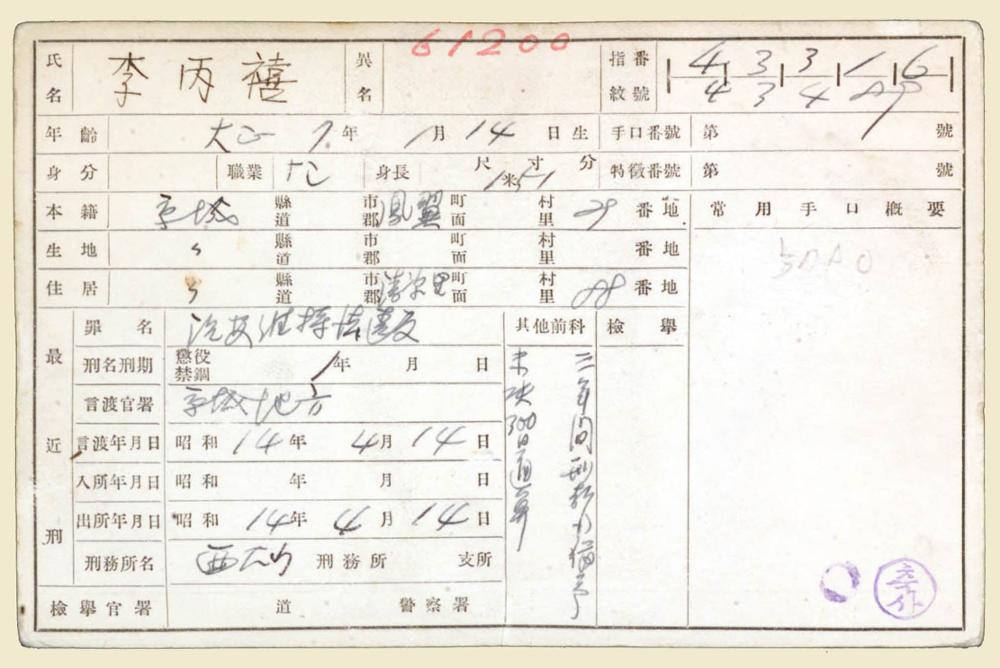 61200
氏名 李丙禧 異名 指紋番號 4 3 3 1 6
4 3 4
年齡 大正 7年 1月 14日生 手口番號 第 號
身分 職業 身長 尺寸分 1米51 特徵番號 第 號
本籍 京城 縣道 市郡 鳳翼 町面 村里 29 番地 常用手口概要
生地 〃 縣道 市郡 町面 村里 番地
住居 〃 縣道 市郡 町面 村里 88 番地
最近刑
罪名 治安維持法違反 其他前科 檢擧
刑名刑期 懲役 禁錮 1年 月 日
言渡官署 京城地方
言渡年月日 昭和 14年 4月 14日
入所年月日 昭和 年 月 日
出所年月日 昭和 14年 4月 14日
刑務所名 西大门 刑務所 支所
三年間刑執行猶予
未決300日通算
檢擧官署 道 警察署